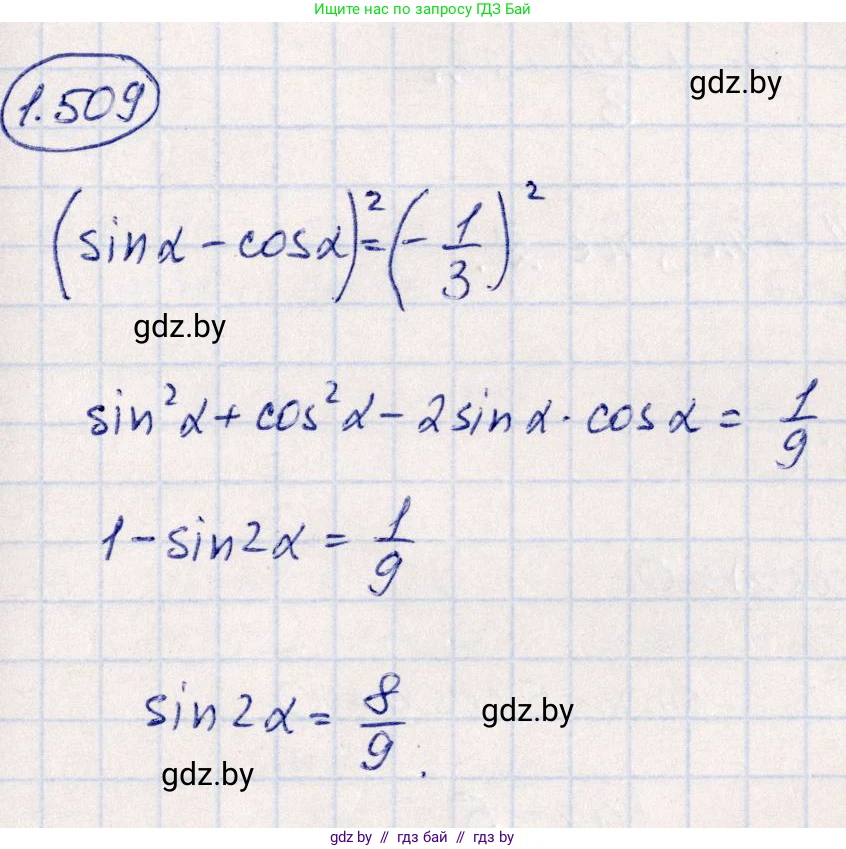 Ищите нас по запросу ГДЗ Бай
1.509
gdz.by
(sinα - cosα)² = (- 1/3)²
gdz.by
sin²α + cos²α - 2sinα · cosα = 1/9
1 - sin2α = 1/9
sin2α = 8/9.
gdz.by
gdz.by
gdz by // гдз бай // гдз by